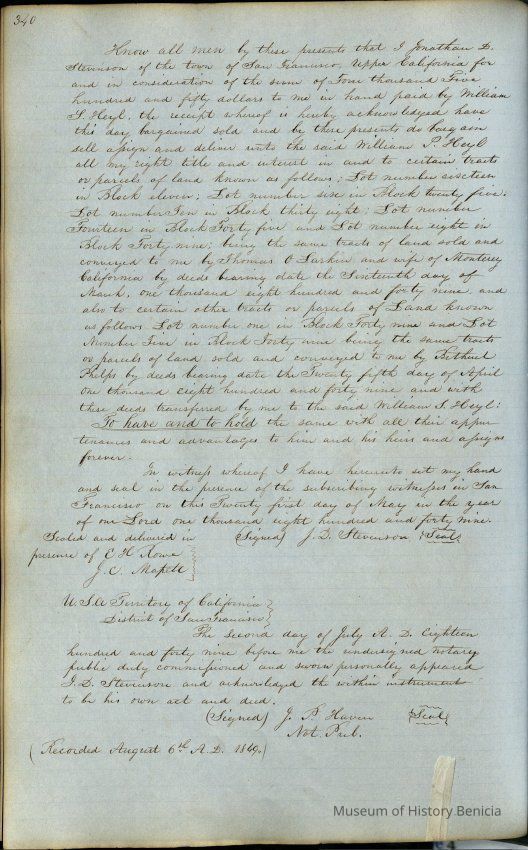 340
Know all men by these presents that I Jonathan D.
Stevenson of the town of San Francisco, Upper California for
and in consideration of the sum of Four thousand Five
hundred and fifty dollars to me in hand paid by William
S. Heyl, the receipt whereof is hereby acknowledged have
this day bargained sold and by these presents do bargain
sell assign and deliver unto the said William S. Heyl
all my right title and interest in and to certain tracts
or parcels of land known as follows; Lot number sixteen
in Block eleven; Lot number six in Block twenty five;
Lot number Ten in Block thirty eight; Lot number
Fourteen in Block Forty five and Lot number eight in
Block Forty nine; being the same tracts of land sold and
conveyed to me by Thomas O Larkin and wife of Monterey
California by deeds bearing date the Sixteenth day of
March, one thousand eight hundred and forty nine, and
also to certain other tracts or parcels of Land known
as follows Lot number one in Block Forty nine and Lot
Number Five in Block Forty nine being the same tracts
or parcels of land sold and conveyed to me by Bethuel
Phelps by deeds bearing date the Twenty fifth day of April
One thousand eight hundred and forty nine and with
these deeds transferred by me to the said William S. Heyl:
To have and to hold the same with all their appur
tenances and advantages to him and his heirs and assigns
forever.
In witness whereof I have hereunto set my hand
and seal in the presence of the subscribing witnesses in San
Francisco on this Twenty first day of May in the year
of our Lord one thousand eight hundred and forty nine.
Sealed and delivered in (Signed) J. D. Stevenson Seal
presence of E H Rowe
J. C.
U. S. A Territory of California
District of San Francisco
The second day of July A. D. Eighteen
hundred and forty nine before me the undersigned notary
public duly commissioned and sworn personally appeared
J. D. Stevenson and acknowledged the within instrument
to be his own act and deed.
(Signed) J. P. Haven Seal
Not. Pub.
(Recorded August 6th A. D. 1849.)
Museum of History Benicia